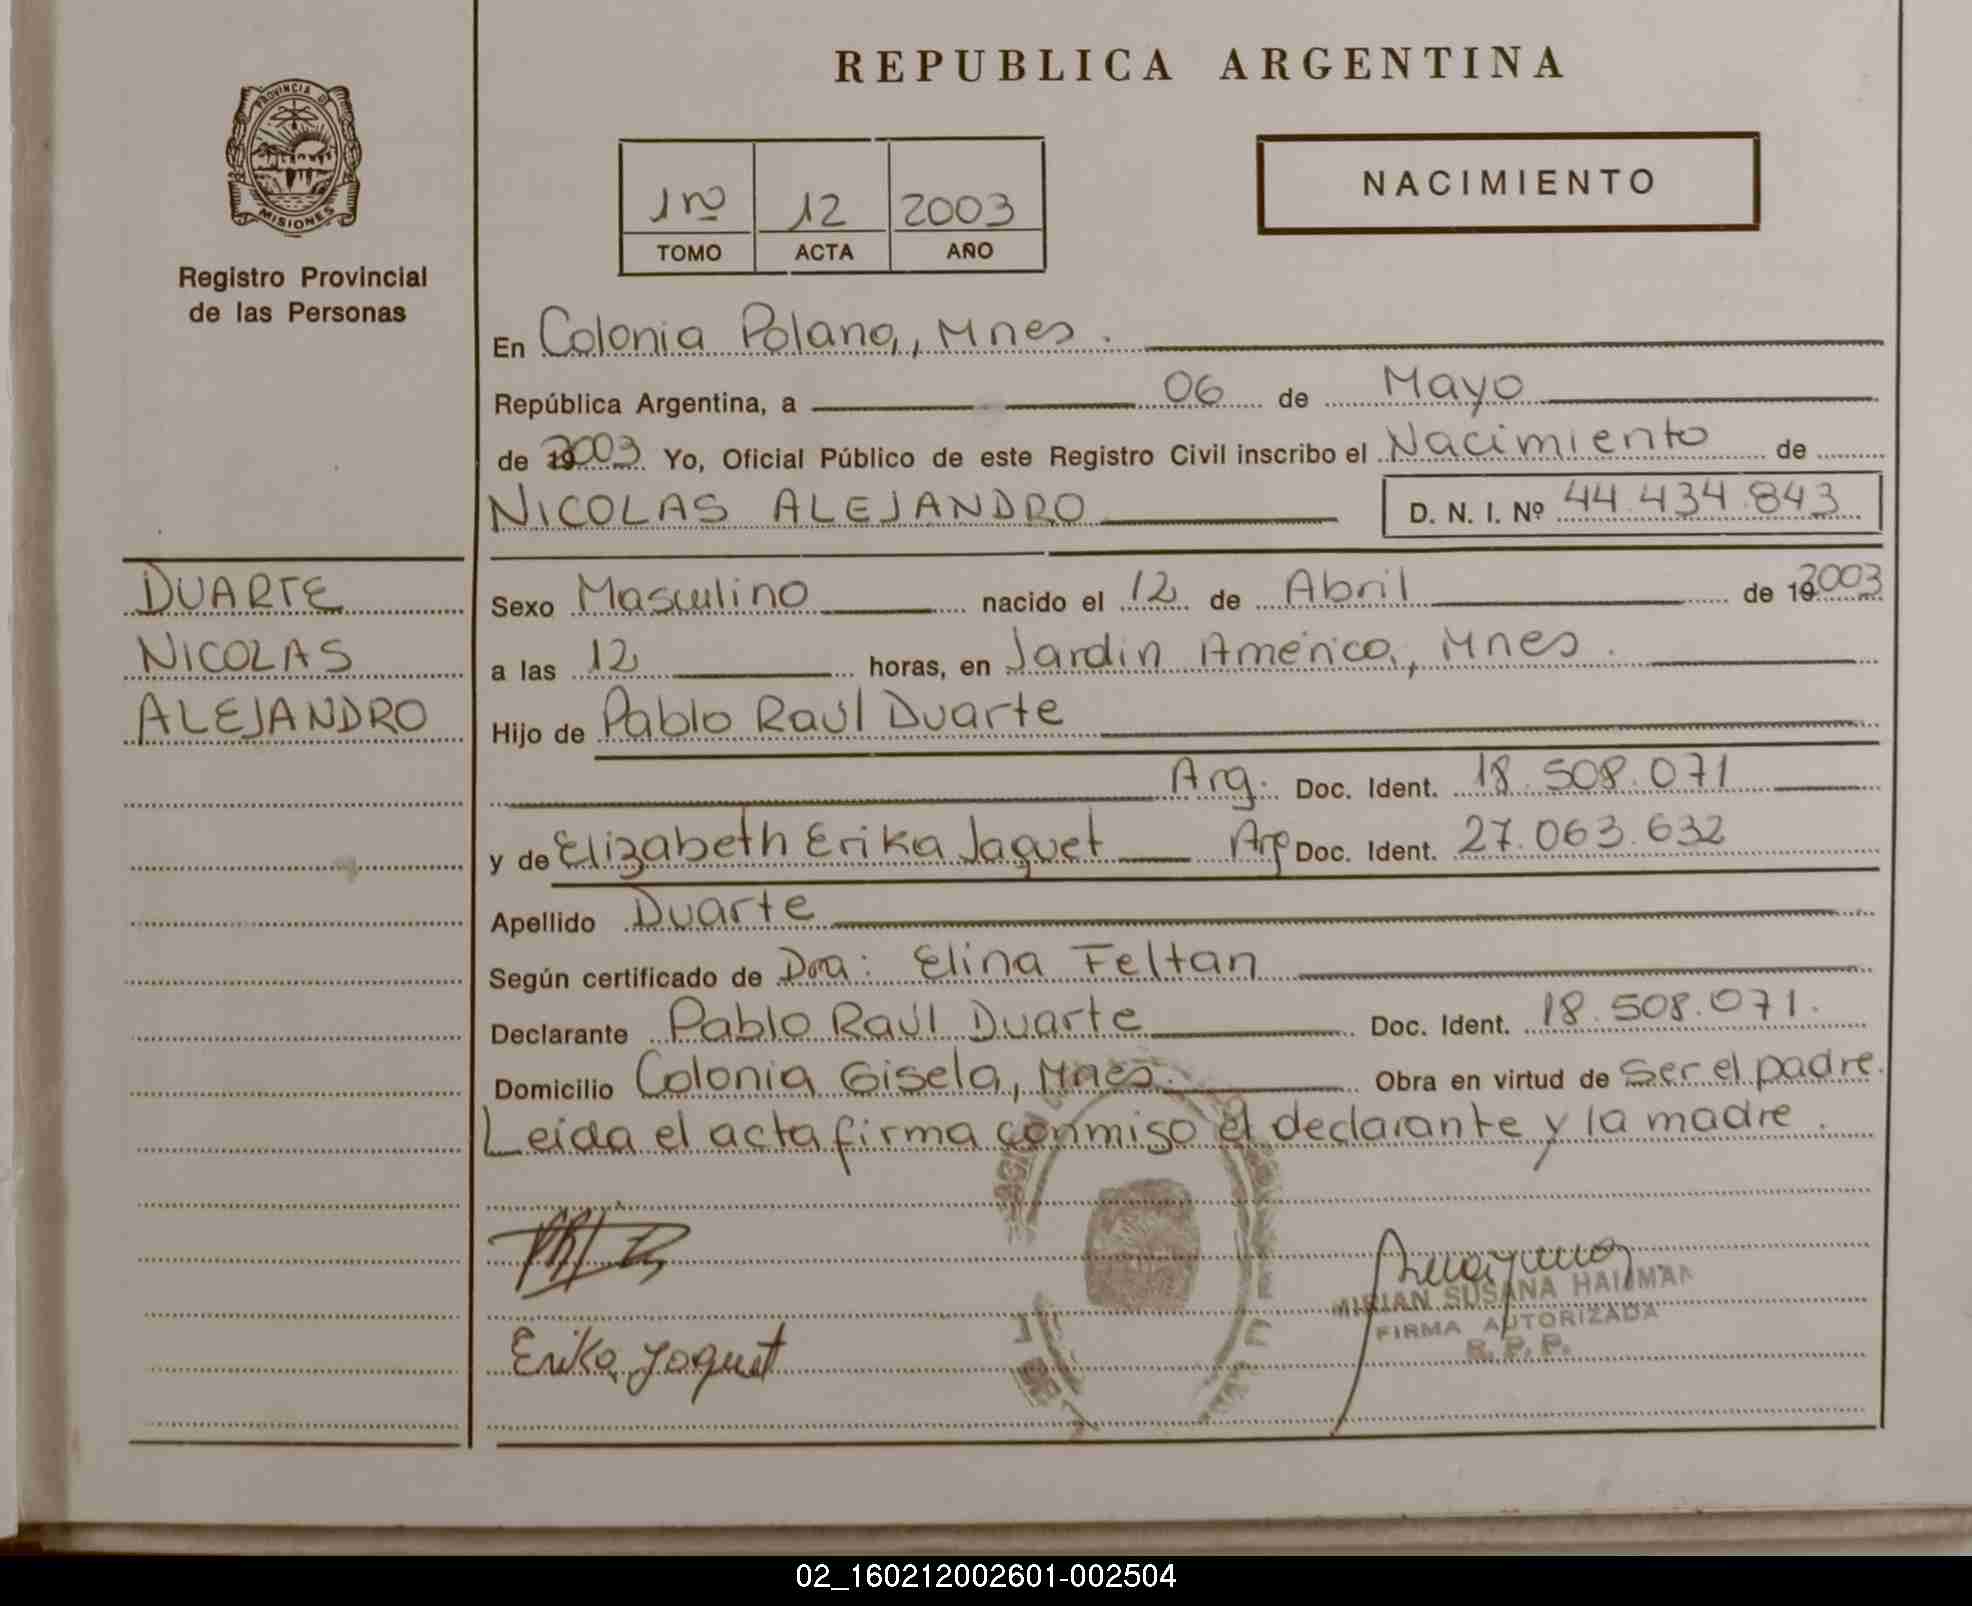 REPUBLICA ARGENTINA
PROVINCIA DE
MISIONES
Registro Provincial
de las Personas
1ro 12 2003
TOMO ACTA AÑO
NACIMIENTO
En Colonia Polana, Mnes.
República Argentina, a 06 de Mayo
de 2003 Yo, Oficial Público de este Registro Civil inscribo el Nacimiento de
NICOLAS ALEJANDRO D. N. I. Nº 44.434.843
DUARTE
NICOLAS
ALEJANDRO
Sexo Masculino nacido el 12 de Abril de 192003
a las 12 horas, en Jardin América, Mnes.
Hijo de Pablo Raúl Duarte
Arg. Doc. Ident. 18.508.071
y de Elizabeth Erika Jaquet Arg Doc. Ident. 27.063.632
Apellido Duarte
Según certificado de Dra: Elina Feltan
Declarante Pablo Raúl Duarte Doc. Ident. 18.508.071.
Domicilio Colonia Gisela, Mnes. Obra en virtud de Ser el padre.
Leida el acta firma conmigo el declarante y la madre.
Erika Jaquet
MIRIAN SUSANA
FIRMA AUTORIZADA
R. P. P.
02_160212002601-002504